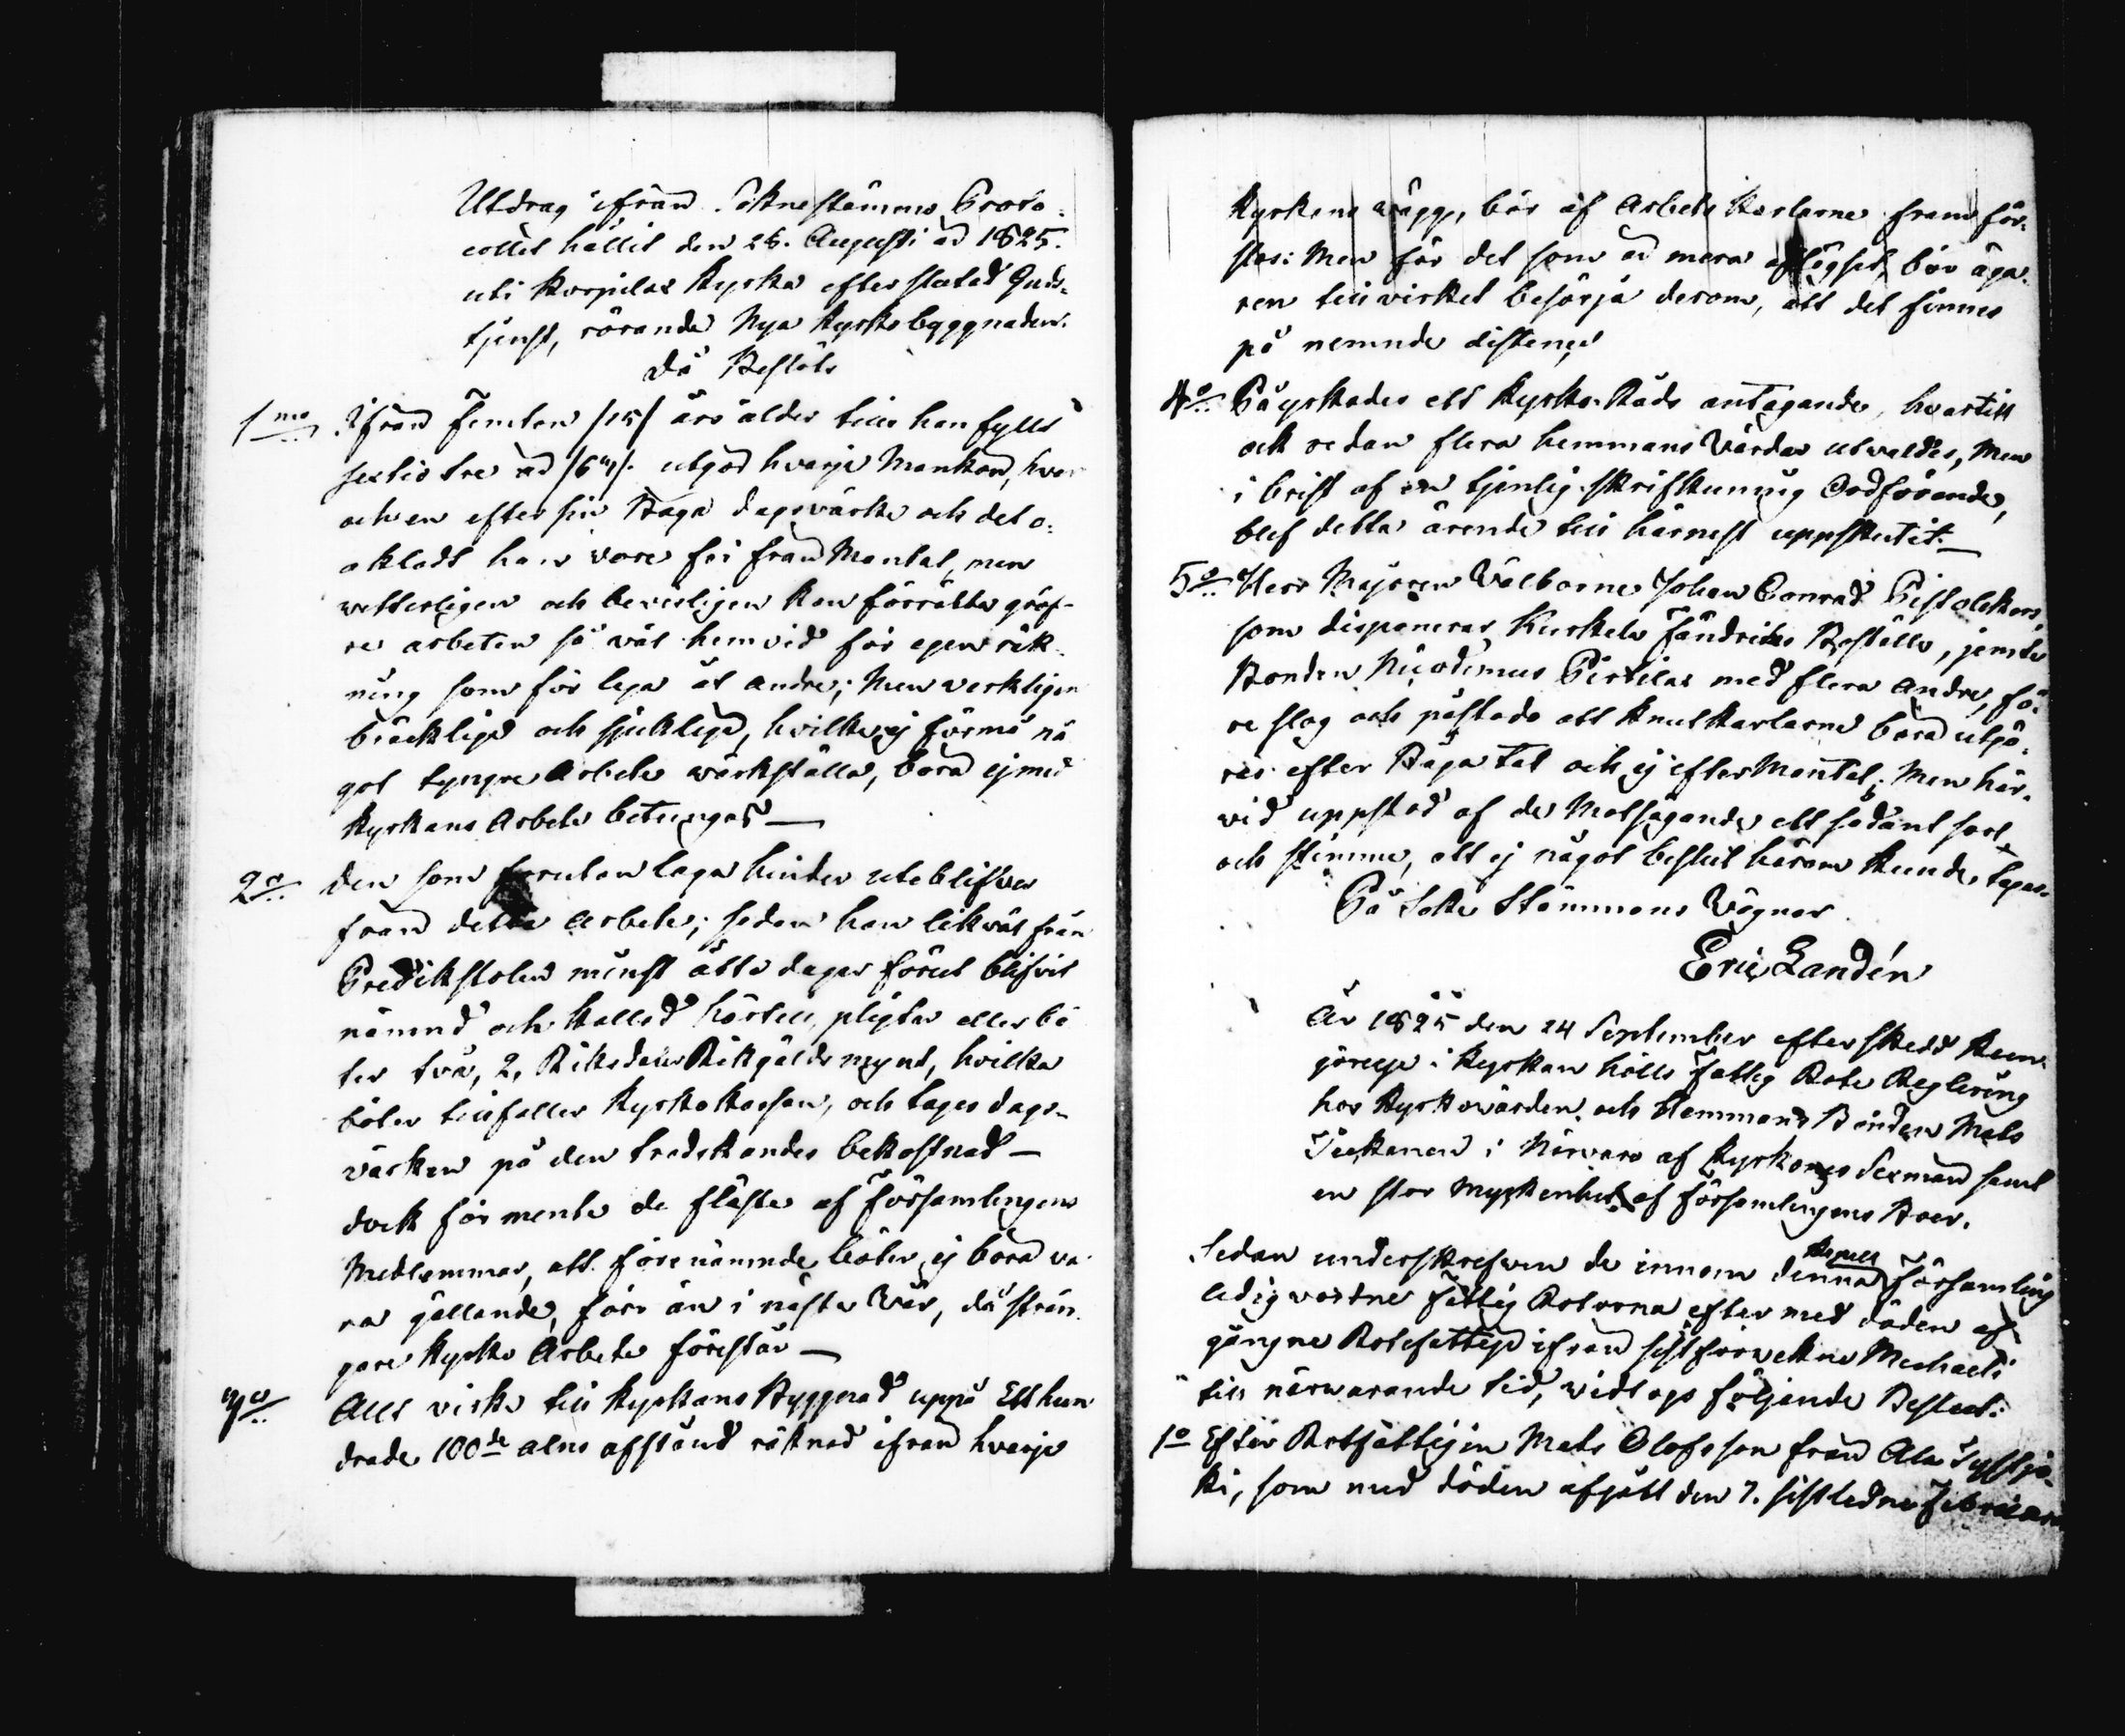 Utdrag ifrån Såknestämmo Proto-
collet hållit den 28. Augusti år 1825.
uti Korpilax Kyrka efter slutad Guds-
tjenst, rörande Nya Kyrkobyggnaden.
då Besluts
1mo Ifrån Femton /15/ års ålder till han fyllt
sextio tre år /63/. utgör hvarje Mankön, hvar
och en efter sin Böga dagsvärke och det o-
aktadt han vore fri från Mantal, men
vetterligen och bevisligen kan förrätta gröf-
re arbeten så väl hemvid för egen räk-
ning som för lega åt andre; Men verkligen
bräcklige och sjuklige, hvilka ej förmå nå
got tyngre Arbete wärkställa, böra ej med
Kyrkans Arbete betungas —
2o Den som förutan laga hinder utablifver
från detta Arbete; sedan han likväl från
Predikstolen minst åtta dagar förut blifvit
nämnd och kallad härtill, pligtar eller bö
ter två, 2, Riksdaler Rikgälds mynt, hvilka
böter tillfaller Kyrkokassan, och tages dags-
värken på den tredskandes bekostnad —
dock förmente de fläste af Församlingens
Medlemmar, att förenämnde böter ej böra va-
ra gällande, förr än i nästa Wår, då strän-
gare Kyrko Arbete förestår —
3o Allt virke till Kyrkans Byggnad uppå Ett hun
drade 100de alns afstånd räknad ifrån hvarje
Kyrkans vägg, bör af Arbets Karlarne fram för-
slas: Men för det som är mera aflägset, bör äga-
ren till virket besörja derom, att det finnes
på nemnde distence
4o Påyrkades ett Kyrko-Råds antagande, hvartill
ock redan flera hemmans Värdar utvaldes, Men
i brist af en tjenlig skrifkunnig Ordförande,
blef detta ärende till härnest uppskutit. —
5o Herr Majoren Välborne Johan Conrad Pistolekors,
som disponerar Kuckela Fändriks Boställe, jemte
Bonden Nicodemus Pirtilax med flera andre, fö-
re slog och påstodo att Knutkarlarne borde utgö-
res efter Böga tal och ej efter Mantal; Men här-
vid uppstod af de Motsägande ett sådant sorl
och stimme, att ej något beslut härom kunde tagas.
På Sokne Stämmans Vägnar
Eric Landén
År 1825 den 24 September efter skedd Kun-
görelse i Kyrkan hölls Fattig Rote Reglering
hos Kyrkovärden och Hemmans Bonden Mats
Tuckanen i Närvaro af Kyrkones Sexmän samt
en stor myckenhet af Församlingens Boer.
Sedan underskrefven de innom denna Kapell Församling
ledig vordne Fattig Rotorna efter med döden af-
gångne Rotefattige ifrån sistförvekne Michaeli
till närwarande tid, vidtogs följande Beslut:
1o Efter Rotfattigen Mats Olofsson från Ala Systjä-
ki, som med döden afgått den 7. sistledne Februarii